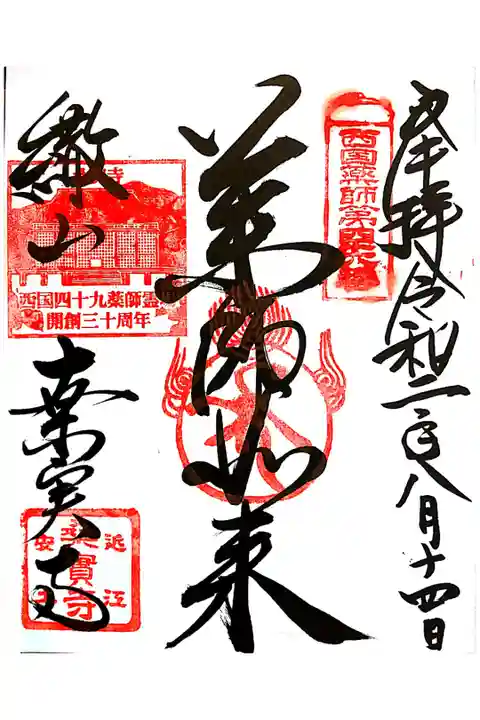 奉拝 令和二年八月十四日
西国薬師第
薬師如来
繖山
西国四十九薬師霊
開創三十周年
桑実寺
近江
桑實寺
安土